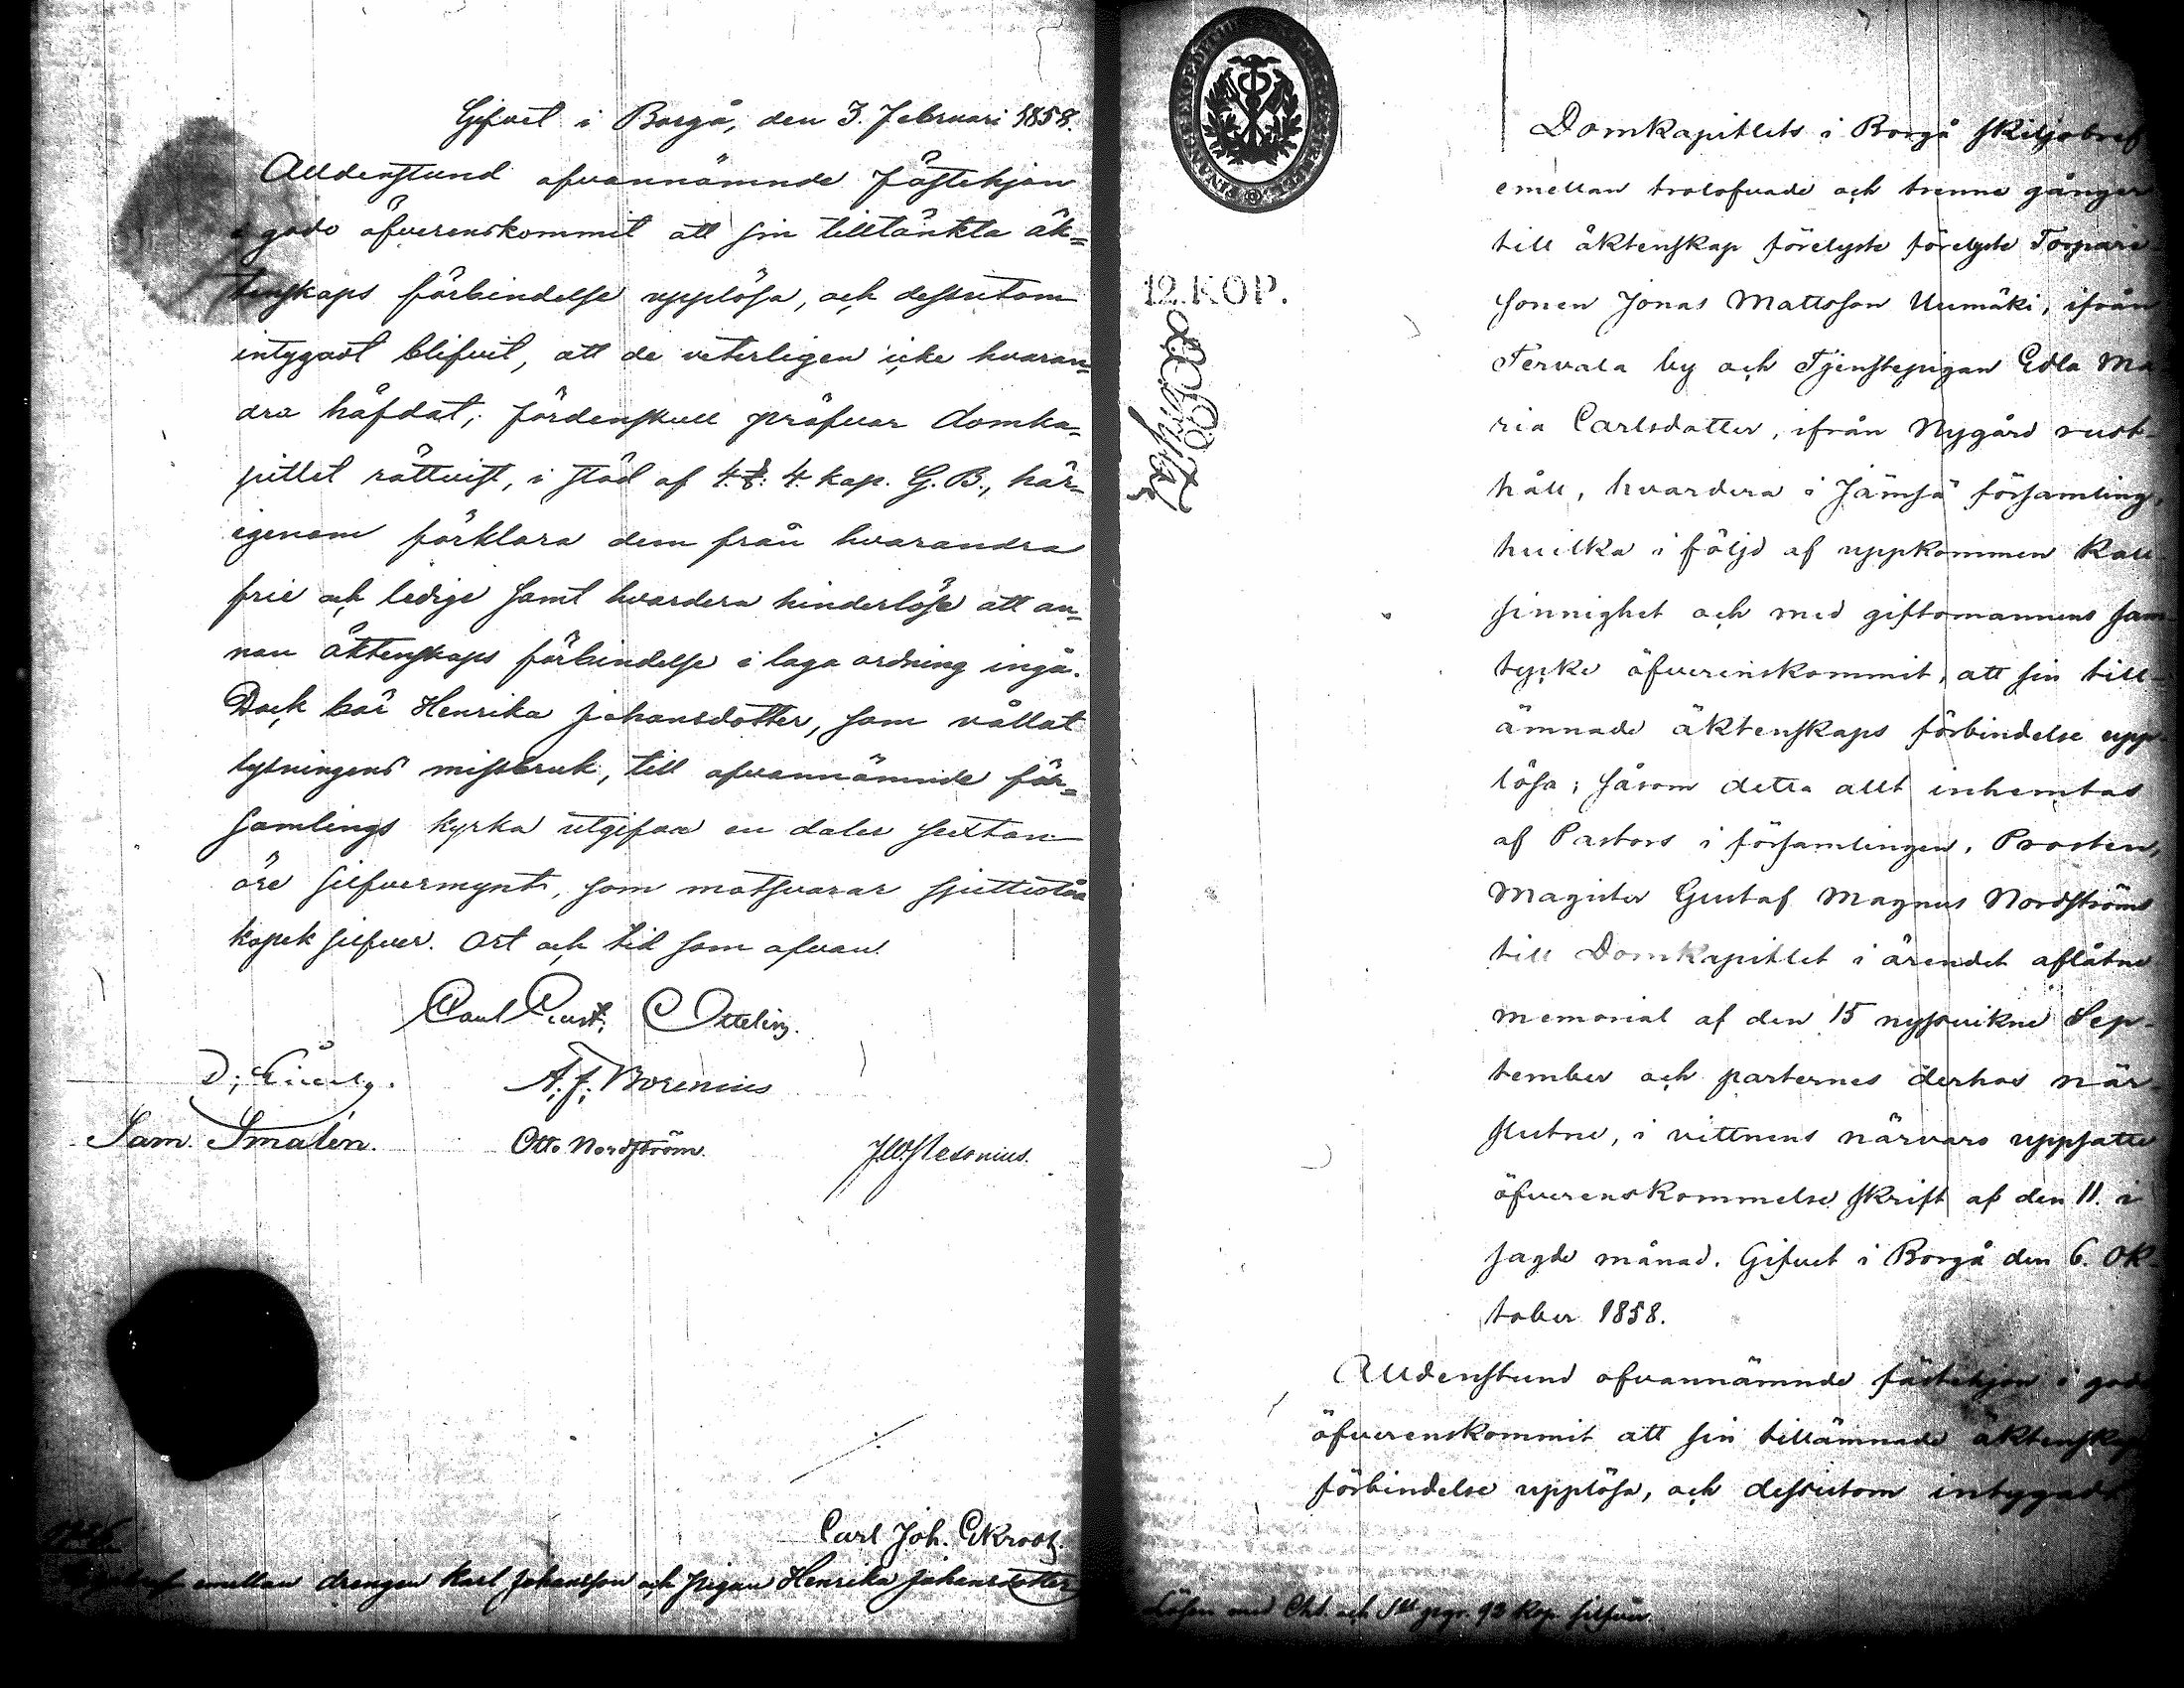 Gifvet i Borgå, den 3. Februari 1858.
Alldenstund ofvannämnde fästehjon
i godo öfverenskommit att sin tilltänkta äk=
tenskaps förbindelse upplösa, och dessutom
intygadt blifvit, att de veterligen icke hvaran=
dra häfdat; fördenskull pröfvar domka=
pitlet rättvist, i stöd af 4. §. 4. kap. G. B., här=
igenom förklara dem från hvarandra
frie och ledige samt hvardera hinderlöse att an=
nan äktenskaps förbindelse i laga ordning ingå.
Dock bör Henrika Johansdotter, som vållat
lysningens missbruk, till ofvannämnde för=
samlings kyrka utgifva en daler sexton
öre silfvermynt, som motsvarar sjuttiotvå
kopek silfver. Ort och tid som ofvan.
Carl Gust. Ottelin.
A. f. Borenius
Sam. Smalén.
Otto Nordström.
Carl Joh. Ekroos
emellan drengen Karl Johansson och pigan Henrika Johansdotter
12. KOP.
Domkapitlets i Borgå skiljobref
emellan trolofvade och trenne gånger
till äktenskap förelyste förelyste Torpare
sonen Jonas Mattsson Uumäki, ifrån
Tervala by och Tjenstepigan Edla Ma
ria Carlsdotter, ifrån Nygård rust-
håll, hvardera i Jämsä församling,
hvilka i följd af uppkommen kall
sinnighet och med giftomannens sam
tycke öfverenskommit, att sin till-
ämnade äktenskaps förbindelse upp-
lösa; såsom detta allt inhemtas
af Pastors i församlingen, Prosten,
Magister Gustaf Magnus Nordströms
till Domkapitlet i ärendet aflåtne
memorial af den 15 nyssvikne Sep-
tember och parternes derhos när
slutne, i vittnens närvaro uppsatte
öfverenskommelse skrift af den 11. i
sagde månad. Gifvet i Borgå den 6. Ok-
tober 1858.
Alldenstund ofvannämnde fästehjon i godo
öfverenskommit att sin tillämnade äktenskaps
förbindelse upplösa, och dessutom intygadt
Lösen med Chd. och 93 kop. silfver.